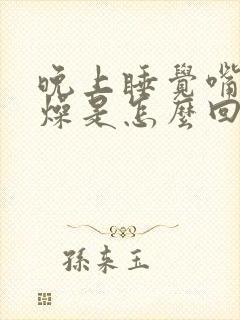 晚上睡覺嘴
燥是怎麼回
孫來玉